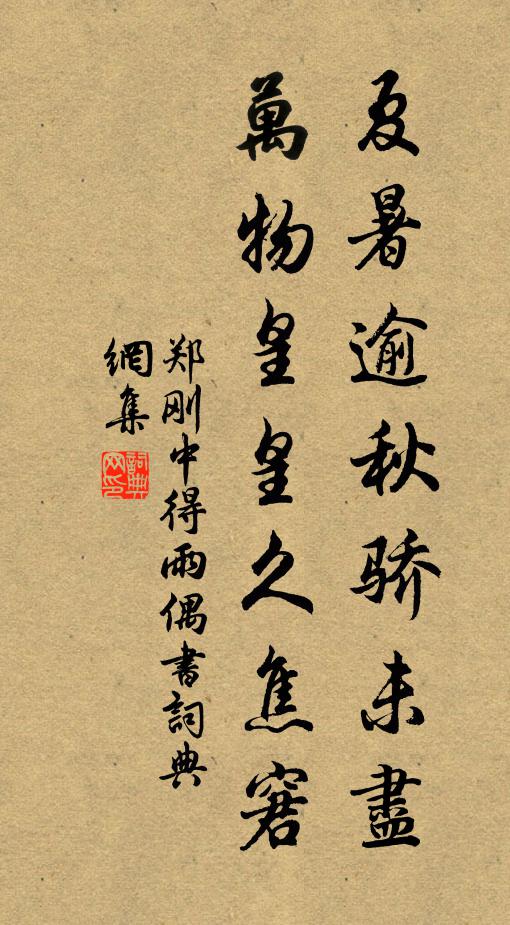 夏暑逾秋骄未盡
萬物皇皇久焦窘
郑刚中得雨偶書詞典
網集
詞典网印